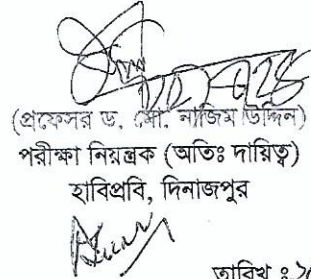 (প্রফেসর ড. মো. নাজিম উদ্দিন)
পরীক্ষা নিয়ন্ত্রক (অতিঃ দায়িত্ব)
হাবিপ্রবি, দিনাজপুর
তারিখ ঃ